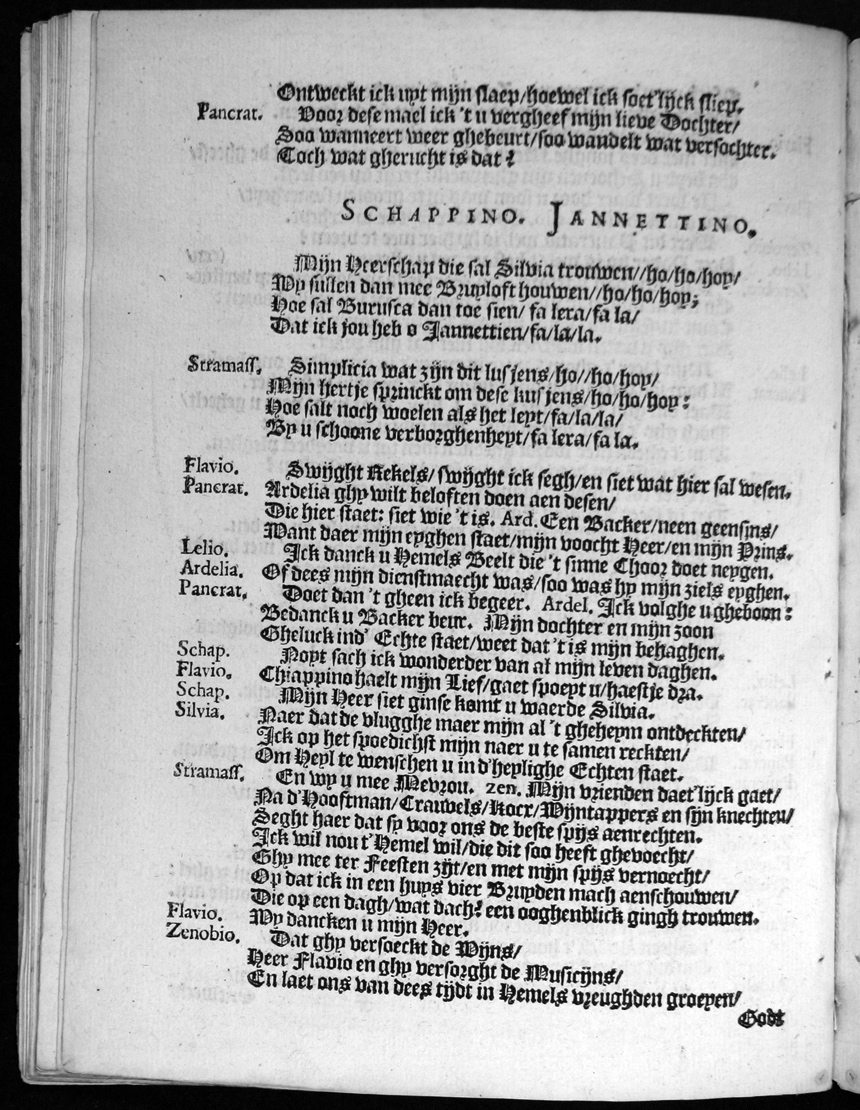 Ontweckt ick uyt mijn slaep/hoewel ick soet'lijck sliep.
Pancrat. Voor dese mael ick 't u vergheef mijn lieve Dochter/
Soo wanneert weer ghebeurt/soo wandelt wat versochter.
Toch wat gherucht is dat?
SCHAPPINO. JANNETTINO.
Mijn Heerschap die sal Silvia trouwen//ho/ho/hoy/
Wy sullen dan mee Bruyloft houwen//ho/ho/hoy;
Hoe sal Burusca dan toe sien/ fa lera/fa la/
Dat ick jou heb o Jannettien/fa/la/la.
Stramass. Simplicia wat zijn dit lusjens/ho//ho/hoy/
Mijn hertje sprinckt om dese kusjens/ho/ho/hoy:
Hoe salt noch woelen als het leyt/fa/la/la/
By u schoone verborghenheyt/fa lera/fa la.
Flavio. Swijght Rekels/swijght ick segh/en siet wat hier sal wesen.
Pancrat. Ardelia ghy wilt beloften doen aen desen/
Die hier staet: siet wie 't is. Ard. Een Backer/neen geensins/
Want daer mijn eyghen staet/mijn voocht Heer/en mijn Prins.
Lelio. Ick danck u Hemels Beelt die 't sinne Choor doet neygen.
Ardelia. Of dees mijn dienstmaecht was/soo was hy mijn ziels eyghen.
Pancrat. Doet dan 't gheen ick begeer. Ardel. Ick volghe u gheboon:
Bedanck u Backer beur. Mijn dochter en mijn zoon
Gheluck ind' Echte staet/weet dat 't is mijn behaghen.
Schap. Noyt sach ick wonderder van al mijn leven daghen.
Flavio. Chiappino haelt mijn Lief/gaet spoeyt u/haestje dra.
Schap. Mijn Heer siet ginse komt u waerde Silvia.
Silvia. Naer dat de vlugghe maer mijn al 't gheheym ontdeckten/
Ick op het spoedichst mijn naer u te samen reckten/
Om Heyl te wenschen u in d'heylighe Echten staet.
Stramass. En wy u mee Mevrou. zen. Mijn vrienden daet'lijck gaet/
Na d'Hooftman/Crauwels/Kocx/Wijntappers en sijn knechten/
Seght haer dat sy voor ons de beste spijs aenrechten.
Ick wil nou t'Hemel wil/die dit soo heeft ghevoecht/
Ghy mee ter Feesten zijt/en met mijn spijs vernoecht/
Op dat ick in een huys vier Bruyden mach aenschouwen/
Die op een dagh/wat dach? een ooghenblick gingh trouwen.
Flavio. Wy dancken u mijn Heer.
Zenobio. Dat ghy versoeckt de Wijns/
Heer Flavio en ghy versorght de Musicijns/
En laet ons van dees tijdt in Hemels vreughden groeyen/
Godt